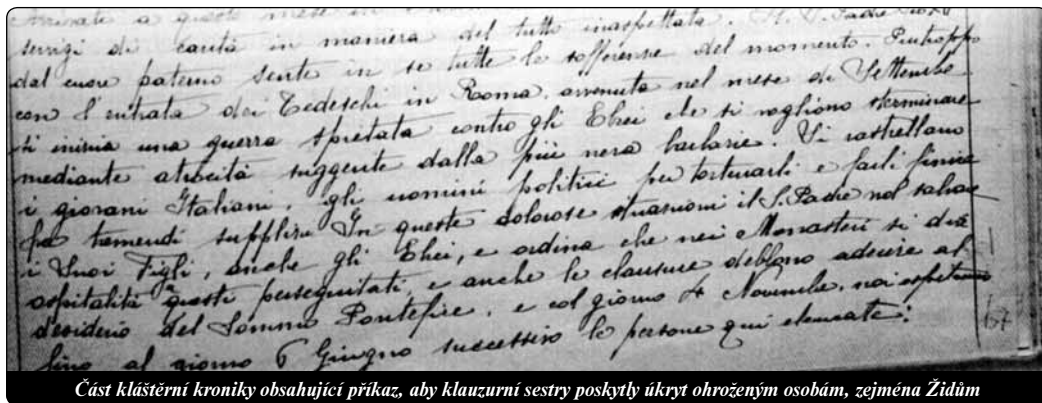 Arrivate a questo mese
servizi di carità in maniera del tutto inaspettata. Il S. Padre
dal cuore paterno sente in se tutte le sofferenze del momento. Purtroppo
con l'entrata dei Tedeschi in Roma, avvenuta nel mese di Settembre
si inizia una guerra spietata contro gli Ebrei che si vogliono sterminare
mediante atrocità suggerite dalla più nera barbarie. Si rastrellano
i giovani Italiani, gli uomini politici per torturarli e farli finire
fra tremendi supplizi. In queste dolorose situazioni il S. Padre vuol salvare
i Suoi Figli, anche gli Ebrei, e ordina che nei Monasteri si dia
ospitalità a questi perseguitati, e anche le clausure debbono aderire al
desiderio del Sommo Pontefice, e col giorno 4 Novembre, noi ospitiamo
fino al giorno 6 Giugno successivo le persone qui elencate:
67
Část klášterní kroniky obsahující příkaz, aby klauzurní sestry poskytly úkryt ohroženým osobám, zejména Židům